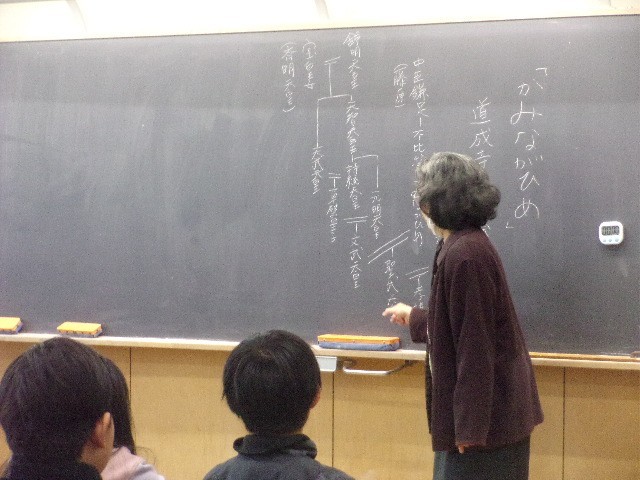 「かみながひめ」
道成寺
中臣鎌足―不比等
(藤原)
聖武天
元明天皇
舒明天皇
天智天皇
持統天皇
文武天皇
草壁皇子
天武天皇
(斉明天皇)